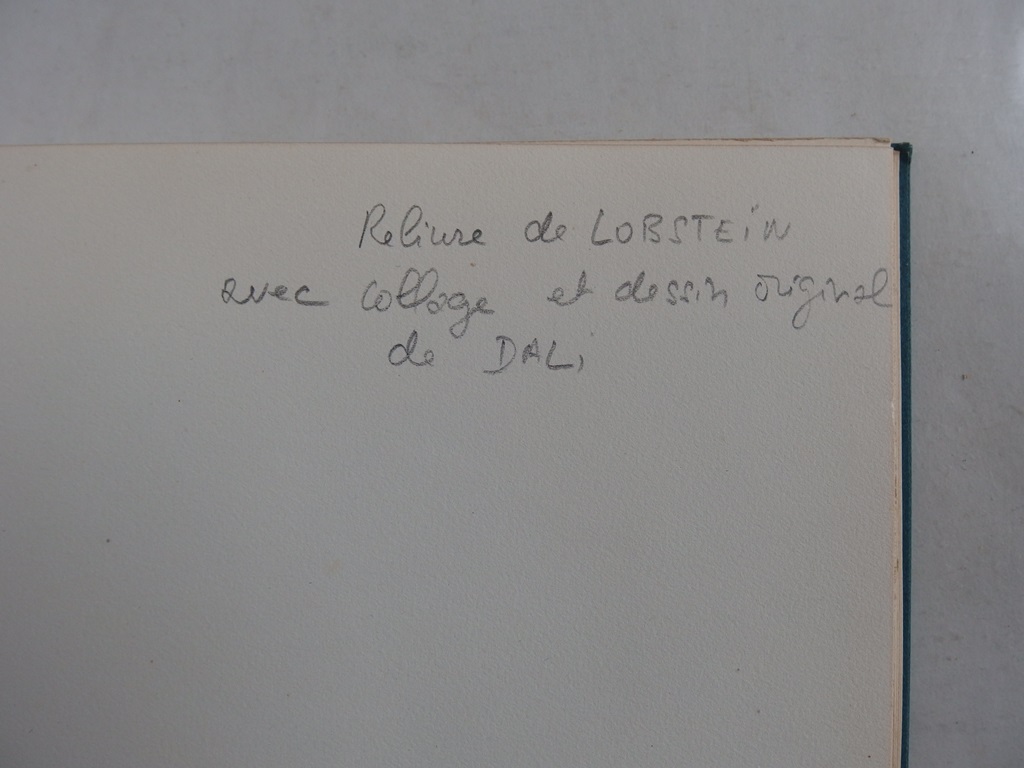 Reliure de LOBSTEiN
avec collage et dessin original
de DALi